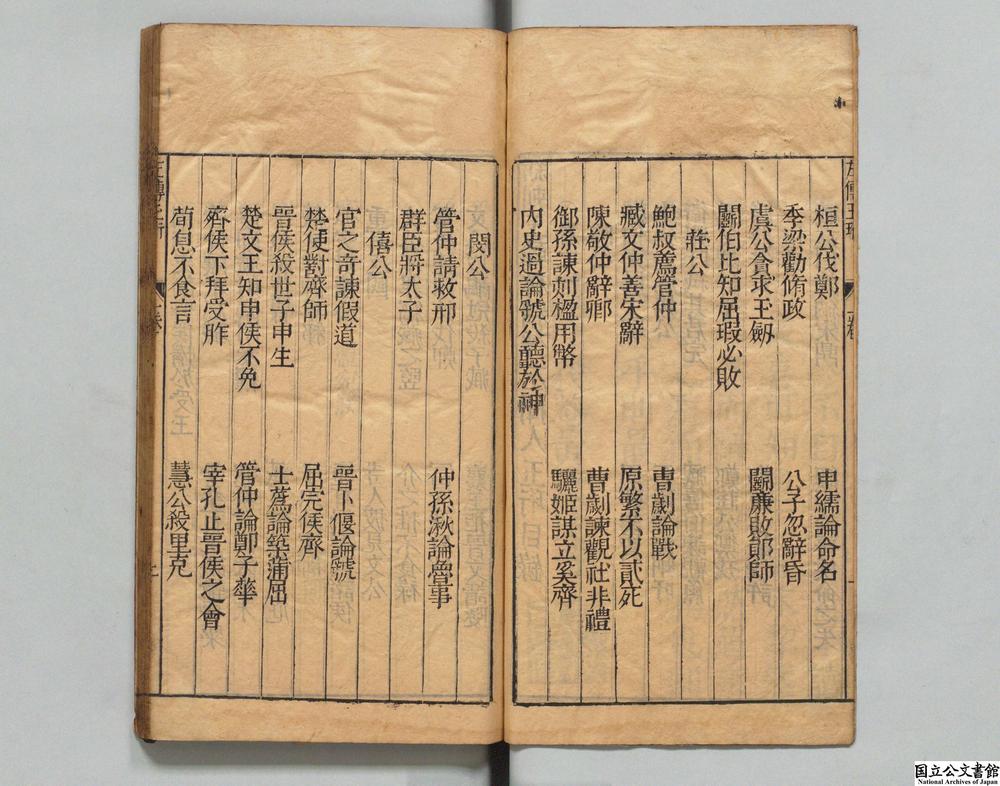 桓公伐鄭　申繻論命名
季梁勸脩政　公子忽辭昏
虞公貪求玉劔　鬬廉敗鄖師
鬬伯比知屈瑕必敗
莊公
鮑叔薦管仲　曹劌論戰
臧文仲善宋辭　原繁不以貳死
陳敬仲辭卿　曹劌諫觀社非禮
御孫諫刻楹用幣　驪姬謀立奚齊
內史過論虢公聽於神
閔公
管仲請救邢　仲孫湫論魯事
群臣將太子
僖公
官之奇諫假道　晉卜偃論虢
楚使對齊師　屈完侯齊
晉侯殺世子申生　士蒍論築蒲屈
楚文王知申侯不免　管仲論鄭子華
齊侯下拜受胙　宰孔止晉侯之會
荀息不食言　慧公殺里克
国立公文書館
National Archives of Japan